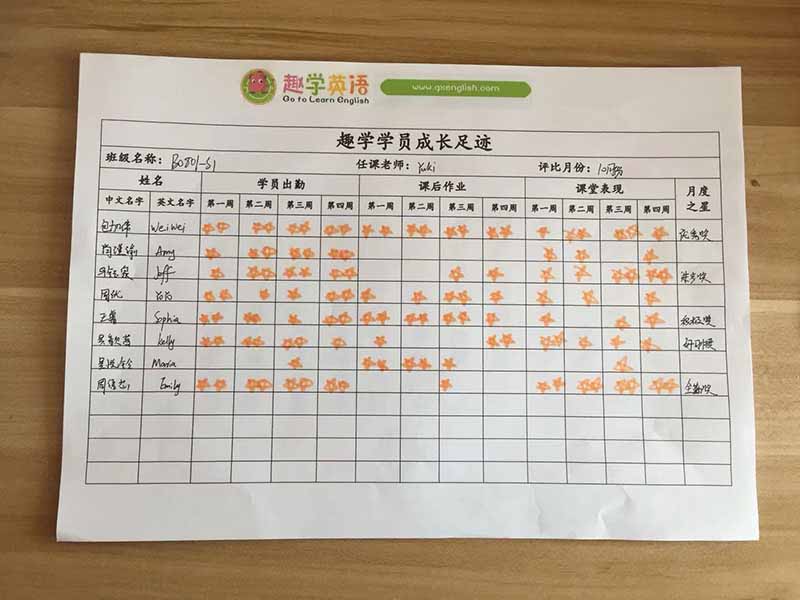 趣学英语
Go to Learn English
www.qxenglish.com
趣学学员成长足迹
班级名称： 任课老师：Yuki 评比月份：
姓名 学员出勤 课后作业 课堂表现 月度之星
中文名字 英文名字 第一周 第二周 第三周 第四周 第一周 第二周 第三周 第四周 第一周 第二周 第三周 第四周
WeiWei
Amy
Jeff
周忱
王蕾 Sophia
Kelly
Maria
Emily